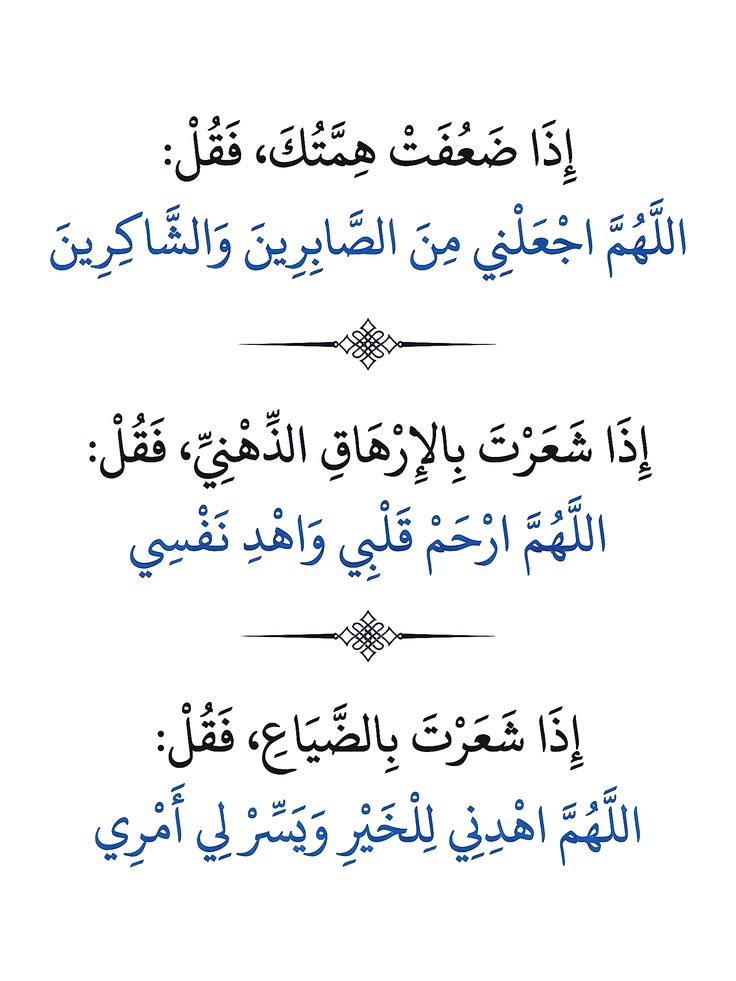 إِذَا ضَعُفَتْ هِمَّتُكَ، فَقُلْ:
اللَّهُمَّ اجْعَلْنِي مِنَ الصَّابِرِينَ وَالشَّاكِرِينَ
إِذَا شَعَرْتَ بِالإِرْهَاقِ الذِّهْنِيِّ، فَقُلْ:
اللَّهُمَّ ارْحَمْ قَلْبِي وَاهْدِ نَفْسِي
إِذَا شَعَرْتَ بِالضَّيَاعِ، فَقُلْ:
اللَّهُمَّ اهْدِنِي لِلْخَيْرِ وَيَسِّرْ لِي أَمْرِي